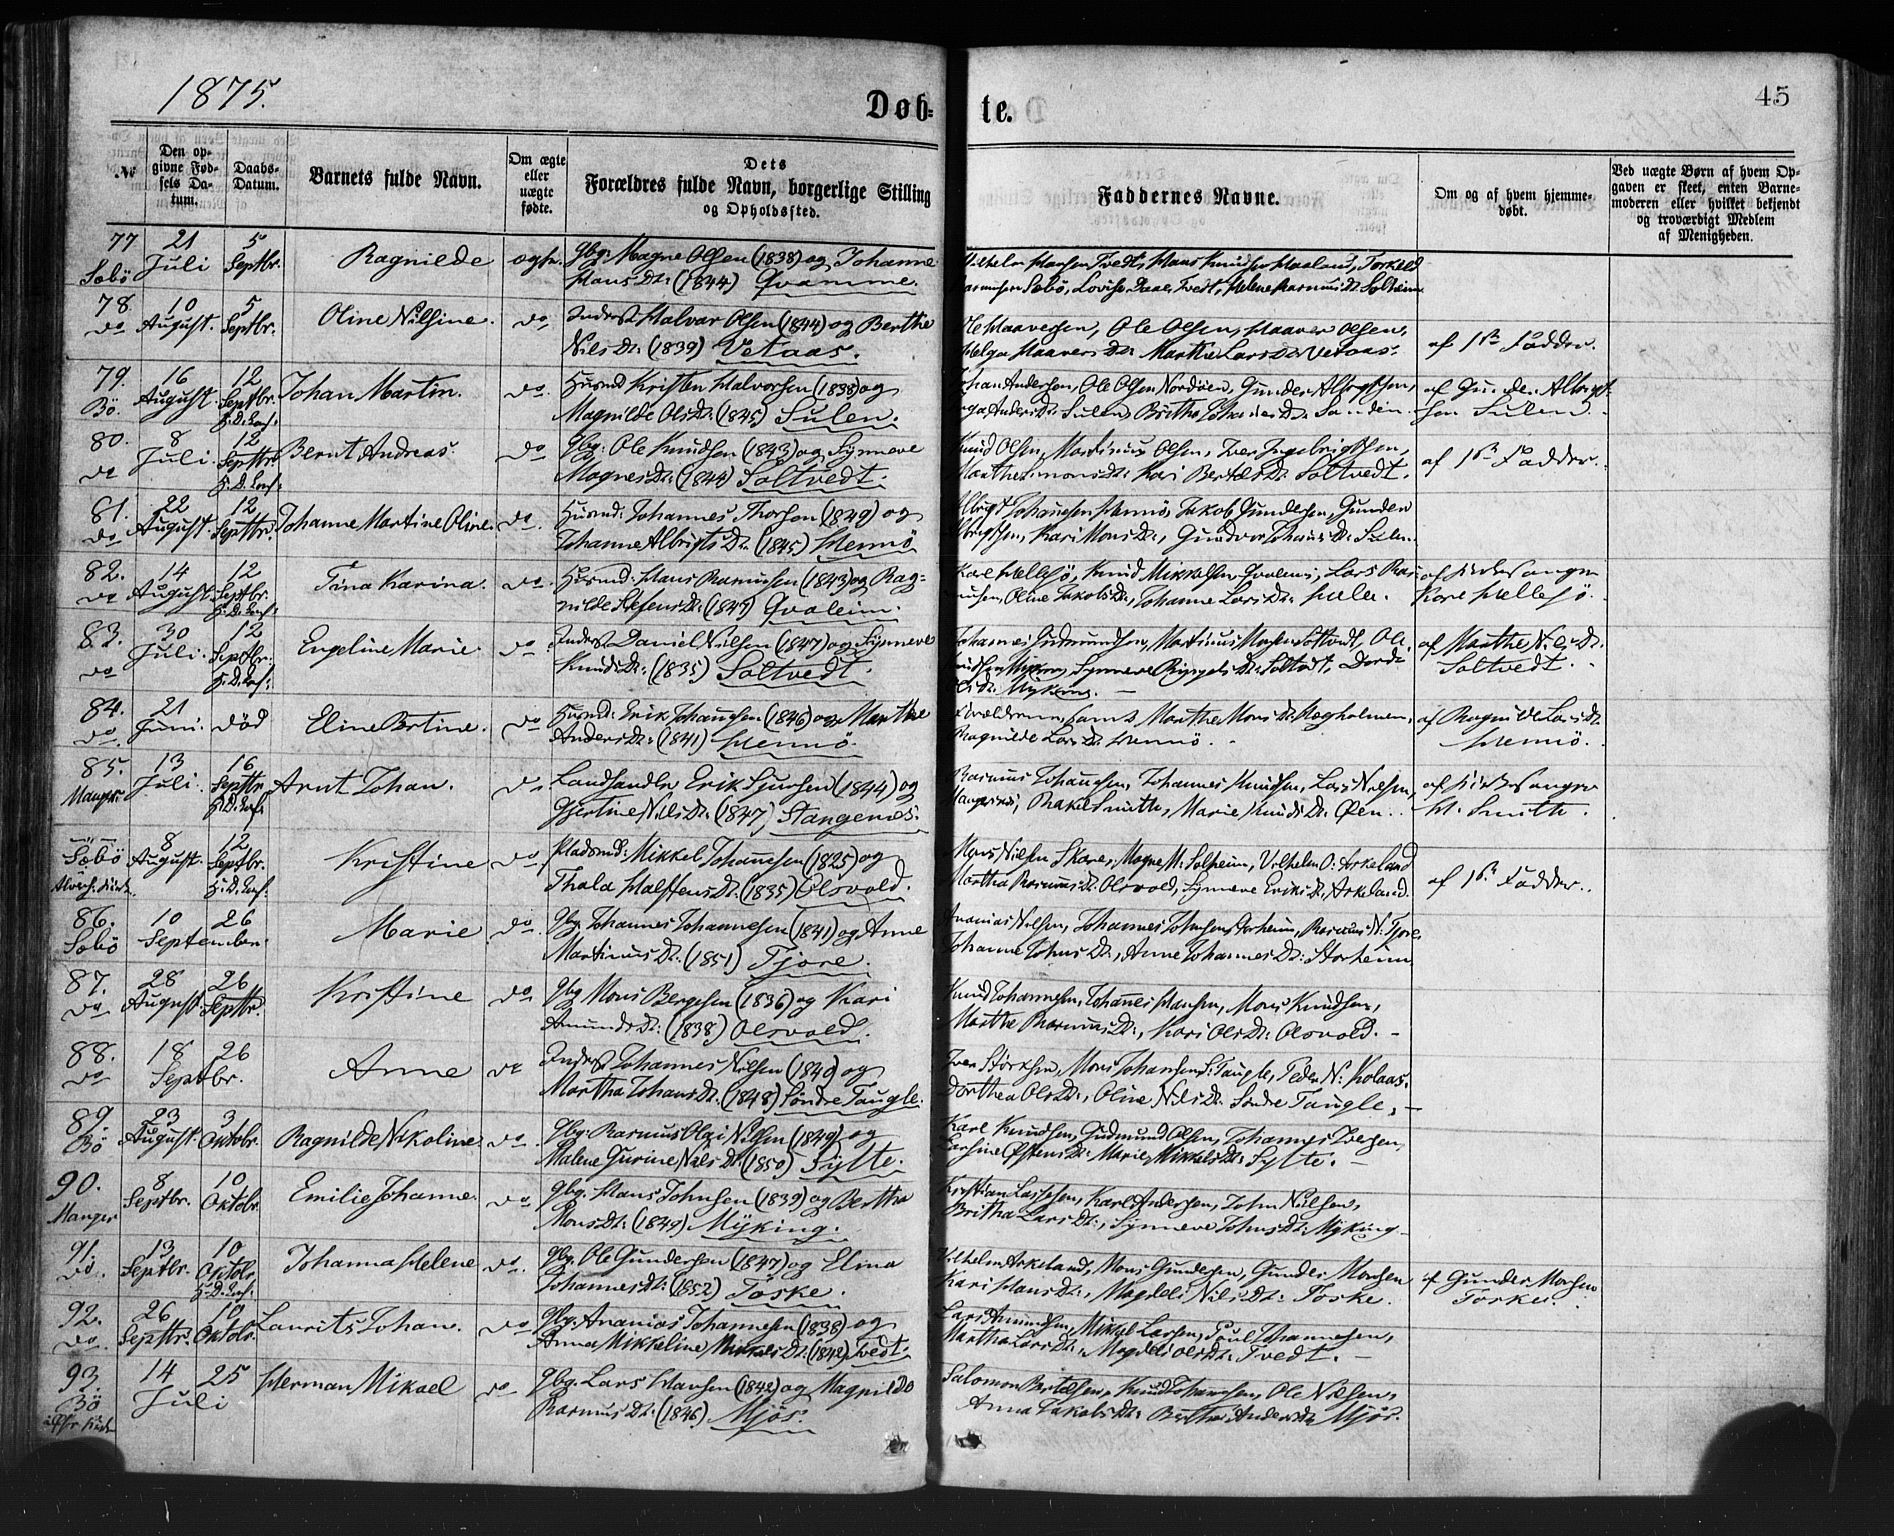 1875.
Døb-
te.
45
№
Den op-
givne Fød-
sels Da-
tum.
Daabs-
Datum.
Barnets fulde Navn.
Om ægte
eller
uægte
fødte.
Dets
Forældres fulde Navn, borgerlige Stilling
og Opholdssted.
Faddernes Navne.
Om og af hvem hjemme-
døbt.
Ved uægte Børn af hvem Op-
gaven er skeet, enten Barne-
moderen eller hvilket bekjendt
og troværdigt Medlem
af Menigheden.
77 21 5
Sæbö Juli Septbr. Ragnilde Gbg: Magne Olsen (1838) og Johanne
Hans Dt: (1844) Qvamme.
Hansen Tvedt, Hans Knudsen Torkild
Sæbö, Lovise Tvedt, Helene Rasmus Dt: Solheim
78 10 5
do August. Septbr. Oline Nilsine. do Inderst Halvar Olsen (1844) og Berthe
Nils Dt: (1839) Vetaas.
Haaversen, Ole Olsen, Haaver Olsen,
Helga Haavers Dt: Marthe Lars Dt: Vetaas. af 1ste Fadder.
79. 16 12
Bö. August. Septbr. Johan Martin. do Husmd Kristen Halvorsen (1838) og
H. D. Conf: Magnilde Ols Dt: (1845) Sulen.
Johan Andersen, Ole Olsen Nordöen, Gunder Albrigtsen, af Gunder Albrigt-
Anders Dt: Sulen, Britha Johannes Dt: sen Sulen
80. 8 12
do Juli. Septbr. Bernt Andreas. do Gbg: Ole Knudsen (1843) og Synneve
H. D. Conf: Magnes Dt: (1844) Soltvedt.
Knud Olsen, Martinus Olsen, Iver Ingebrigtsen,
Marthe Simons Dt: Kari Bertels Dt: Soltvedt. af 1ste Fadder.
81. 22 12
do August. Septbr. Johanne Martine Oline. do. Husmd: Johannes Thorsen (1849) og
Johanne Albrigts Dt: (1845) Hennö
Albrigt Johannesen Hennö, Jakob Gundersen, Gunder
Albrigtsen, Kari Mons Dt:, Gundvor Johans Dt: Sulen.
82. 14 12
do August. Septbr. Tina Karina. do. Husmd: Hans Rasmusen (1843) og Rag-
H. D. Conf: nilde Stefens Dt: (1847) Qvaleim.
Karl Hellesö, Knud Mikkelsen Qvaleim, Lars Ras- af Kirkesanger
musen, Oline Jakobs Dt:, Johanne Lars Dt: Karl Hellesö.
83. 30 12
do Juli. Septbr. Engeline Marie. do Inderst Daniel Nilsen (1847) og Synneve
H. D. Conf: Knuds Dt: (1835) Soltvedt.
Johannes Gudmundsen, Martinus Soltvedt, Ole af Marthe Nils Dt:
Mÿking, Synneve Soltvedt, Dorde Soltvedt.
Ols Dt: Mÿking.
84. 21
do. Juni. död Eline Bertine. do Husmd: Erik Johannesen (1846) og Marthe
Anders Dt: (1841) Hennö.
Forældrene, samt Marthe Mons Dt: af Ragnilde Lars Dt:
Ragnilde Lars Dt: Hennö. Hennö.
85. 13 16
Manger Juli. Septbr. Arnt Johan. do Landhandler Erik Sjursen (1844) og
H. D. Conf: Gjertine Nils Dt: (1847) Stangenæs.
Rasmus Johannesen, Johannes Knudsen, Lars Nilsen, af Kirkesanger
Rakel Smith, Marie Knuds Dt: Öen. Smith.
Sæbö 8 12
August. Septbr. Kristine do Pladsmd: Mikkel Johannesen (1825) og
H. D. Conf: Thala Halstens Dt: (1835) Olsvold.
Mons Nilsen Skare, Magne M: Solheim, Vilhelm O: Askeland
Martha Rasmus Dt: Olsvold, Synneve Eriks Dt: Askeland. af 1ste Fadder.
86. 10 26
Sæbö September. Marie do. Gbg. Johannes Johannesen (1841) og Anne
Martinus Dt: (1851) Tjore.
Ananias Nilsen, Johannes Johnsen Storheim, Rasmus N: Tjore,
Johanne Johns Dt:, Anne Johannes Dt: Storheim
87. 28 26
do August. Septbr. Kristine do Gbg Mons Bergesen (1836) og Kari
Amunds Dt: (1838) Olsvold.
Knud Johannesen, Johannes Hansen, Mons Knudsen,
Marthe Rasmus Dt:, Kari Ols Dt: Olsvold.
88. 18 26
do Septbr. Anne do Inderst Johannes Nilsen (1849) og
Martha Johans Dt: (1848) Söndre Taugle.
Iver Störksen, Mons Johansen S: Taugle, Peder N: Kolaas.
Dorthea Ols Dt:, Oline Nils Dt: Söndre Taugle.
89. 23 3
Bö August. Oktobr. Ragnilde Nikoline. do. Gbg: Rasmus Olai Nilsen (1849) og
Malene Gurine Nils Dt: (1850) Sylte.
Karl Knudsen, Gudmund Olsen, Johannes Iversen,
Dt: Marie Mikkels Dt: Sylte.
90. 8 10
Manger Septbr. Oktobr. Emilie Johanne. do. Gbg. Hans Johnsen (1839) og Bertha
Mons Dt: (1849) Mÿking.
Kristian Lassesen, Karl Andersen, John Nilsen,
Britha Lars Dt:, Synneve Johns Dt: Mÿking
91. 13 10
do. Septbr. Oktobr. Johanna Helene do. Gbg. Ole Gundersen (1847) og Elina
H. D. Conf: Johannes Dt: (1852) Toske.
Vilhelm Askeland, Mons Gundersen, Gunder Monsen af Gunder Monsen
Kari Hans Dt:, Magdeli Nils Dt: Toske. Toske.
92. 26 10
do. Septbr. Oktobr. Laurits Johan. do Gbg: Ananias Johannesen (1838) og
Anna Mikkeline Mikkels Dt: (1842) Tvedt.
Lars Amundsen, Mikkel Larsen, Poul Johannesen,
Martha Lars Dt:, Magdeli Ols Dt: Tvedt.
93. 14 25
Bö Juli Herman Mikael do Gbg. Lars Hansen (1842) og Magnilde
Rasmus Dt: (1846) Mjös.
Salomon Bertelsen, Knud Johannesen, Ole Nilsen,
Anna Jakobs Dt: Berthe Anders Dt: Mjös.